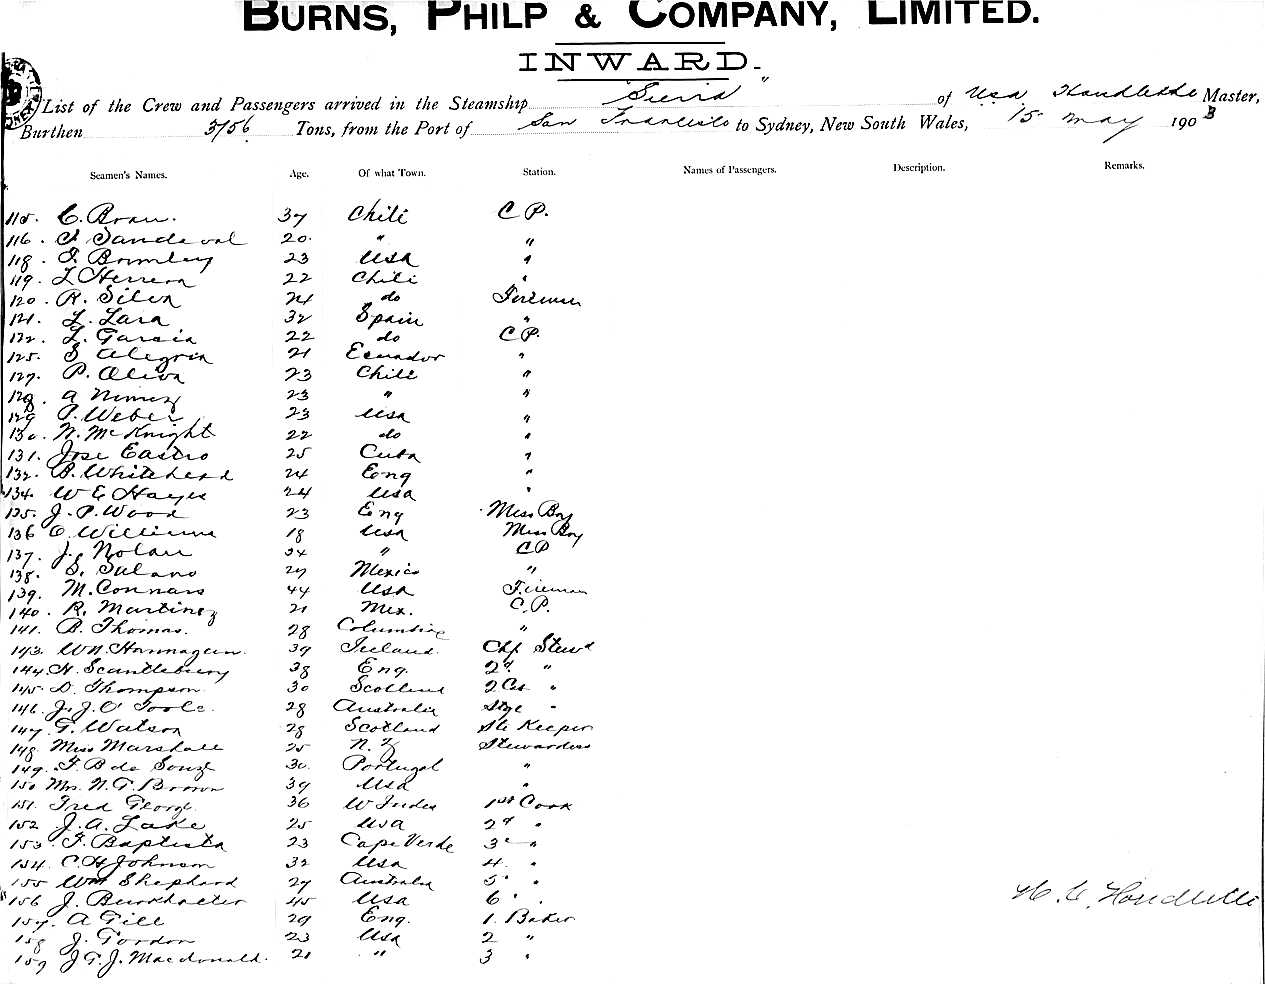 BURNS, PHILP & COMPANY, LIMITED.
INWARD.
List of the Crew and Passengers arrived in the Steamship "Sierra" of USA Houdlette Master,
Burthen 3756 Tons, from the Port of San Francisco to Sydney, New South Wales, 15 May 1903
Seamen's Names. Age. Of what Town. Station. Names of Passengers. Description. Remarks.
115. C. Bravo. 37 Chili C P.
116. S Sandoval 20. " "
118. J. Bromley 23 USA "
119. L Herrera 22 Chili "
120. R. Silva 24 do Fireman
121. L. Lara 32 Spain "
122. L. Garcia 22 do C P.
125. S Alegria 21 Ecuador "
127. P. Oliva 23 Chili "
128. A Nimez 23 " "
129 P. Weber 23 USA "
130. N. McKnight 22 do "
131. Jose Castro 25 Cuba "
132. B. Whitehead 24 Eng "
134. W E Hayes 24 USA "
135. J. P. Wood 23 Eng Mess Boy
136 C. Williams 18 USA Mess Boy
137. J. Nolan 34 " C P
138. S. Sulano 27 Mexico "
139. M. Connars 44 USA Fireman
140. R. Martinez 21 Mex. C.P.
141. B. Thomas. 28 Columbia "
143. Wm Hannagan. 39 Ireland. Chf Stewd
144. H. Scantlebury 38 Eng. 2d. "
145. D. Thompson 30 Scotland 2 Cas "
146. J. J. O'Toole. 28 Australia Stge "
147. G. Watson 28 Scotland Ste Keeper
148. Miss Marshall 25 N. Z Stewardess
149. F. B de Souza 30. Portugal "
150 Mrs. N. T. Brown 39 USA "
151. Fred George 36 W Indes 1st Cook
152 J. A. Lake 25 USA 2d "
153. F. Baptista 23 Cape Verde 3d "
154. C. H Johnson 32 USA 4. "
155 Wm Shephard 27 Australia 5. "
156 J. Burkhalter 45 USA 6. "
157. A Gill 29 Eng. 1. Baker
158 J. Gordon 23 USA 2 "
159 J. G. J. Macdonald. 21 " 3 "
H. C. Houdlette